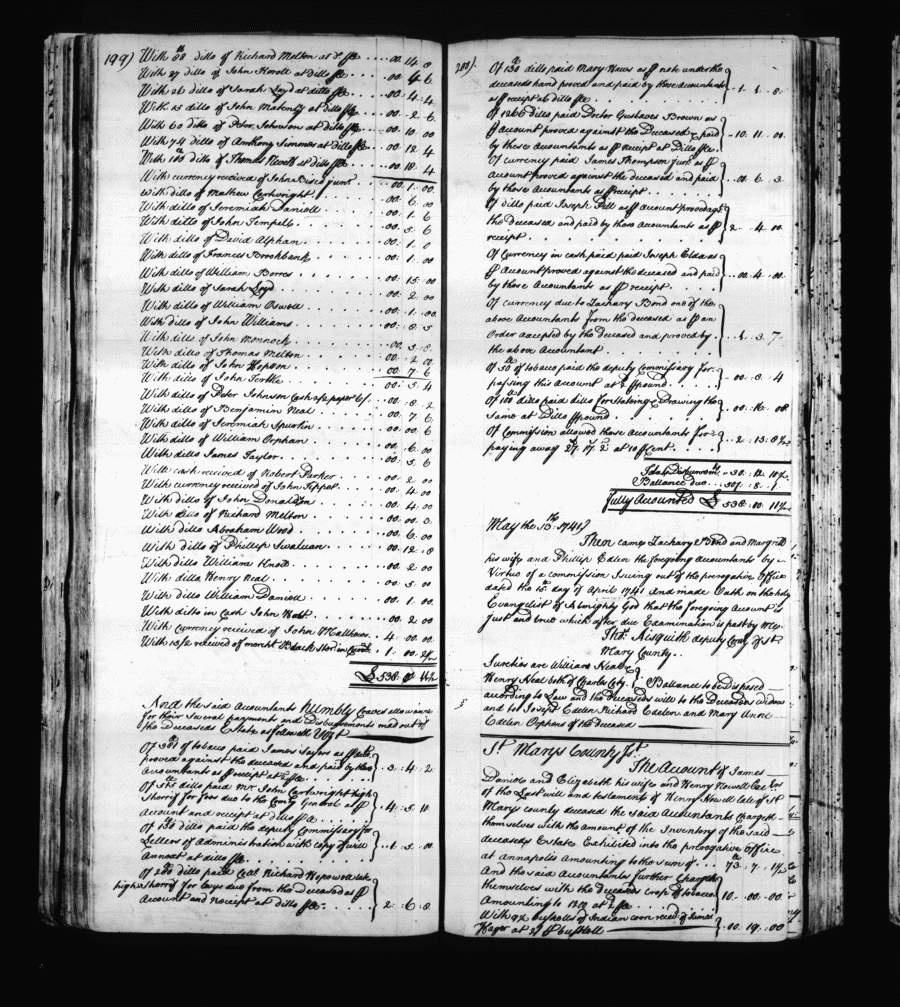 199)
With 88 ditto of Richard Melton at do ⅌ . . . . 00. 14. 8
With 27 ditto of John Howell at ditto ⅌ . . . 00. 4. 6
With 26 ditto of Sarah Loyd at ditto ⅌ . . 00. 4. 4
With 15 ditto of John at ditto ⅌ . . 00. 2. 6
With 60 ditto of Peter Johnson at ditto ⅌ . . 00. 10. 00
With 74 ditto of Anthony Simmes at ditto ⅌ . . 00. 12. 4
With 110 ditto of Thomas Howell at ditto ⅌ . . 00. 18. 4
With currency received of John junr . . 00. 1. 00
With ditto of Mathew Cartwright . . . 00. 6. 00
With ditto of Jeremiah Daniell . . . 00. 1. 6
With ditto of John Temple . . . 00. 5. 6
With ditto of David Alpham . . . 00. 1. 0
With ditto of Francis Brookbank . . . 00. 1. 00
With ditto of William . . . 00. 15. 00
With ditto of Sarah Loyd . . . 00. 2. 00
With ditto of William . . . 00. 1. 00
With ditto of John Williams . . . 00. 8. 5
With ditto of John . . . 00. 3. 8
With ditto of Thomas Melton . . . 00. 2. 00
With ditto of John Hopson . . . 00. 7. 6
With ditto of John . . . 00. 5. 4
With ditto of Peter Johnson Cash paper . . 00. 8. 2
With ditto of Benjamin Neal . . . 00. 7. 6
With ditto of Jeremiah . . . 00. 00. 6
With ditto of William Orphan . . . 00. 6. 00
With ditto of James Taylor . . . 00. 5. 6
With cash received of Robert Parker . . . 00. 2. 00
With currency received of John Tippet . . . 00. 4. 00
With ditto of John Donaldson . . . 00. 4. 00
With ditto of Richard Melton . . . 00. 00. 3
With ditto Abraham Wood . . . 00. 6. 00
With ditto of Phillip Swaluan . . . 00. 12. 8
With ditto William Knott . . . 00. 2. 00
With ditto Henry Neal . . . 00. 5. 00
With ditto William Daniell . . . 00. 1. 00
With ditto in Cash John . . . 00. 2. 00
With Currency received of John Matthews . 4. 00. 00
With received of . 1. 00.
£ 538. 0. 11½
And the said Accountants Humbly Craves allowance
for their Several payments and Disbursements made out of
the Deceased Estate as followeth Vizt
Of 381 of tobacco paid James Taylor as ⅌
proved against the deceased and paid by these
Accountants as ⅌ receipt at ⅌ . . 3. 4. 2
Of 515 ditto paid Mr John Cartwright high
Sherriff for fees due to the Comry General as ⅌
Account and receipt at ditto ⅌ . . 4. 5. 10
Of 150 ditto paid the deputy Commissary for
Letters of Administration with Copy of will
Annext at ditto ⅌ . . . 1. 5. 00
Of 280 ditto paid Coll Richard Hopewell late
high Sherriff for Leavys due from the Deceased as ⅌
Account and Receipt at ditto ⅌ . . . 2. 6. 8
200)
Of 130 ditto paid Mary Haws as ⅌ note under the
deceaseds hand proved and paid by these accountants
as ⅌ receipt at ditto ⅌ . . . 1. 1. 8
Of 1266 ditto paid Doctor Gustavus Brown as
⅌ Account proved against the Deceased & paid
by these Accountants as ⅌ receipt at Ditto ⅌ . . 10. 11. 00
Of currency paid James Thompson junr as ⅌
Account proved against the deceased and paid
by these Accountants as ⅌ receipt . . . 00. 6. 3
Of ditto paid Joseph as ⅌ account proved agt
the Deceased and paid by these Accountants as ⅌
receipt . . . 2. 4. 00
Of Currency in cash paid paid Joseph as
⅌ Account proved against the deceased and paid
by these Accountants as ⅌ receipt . . . 00. 4. 00
Of currency due to Zachary Bond one of the
above Accountants from the deceased as ⅌ an
Order accepted by the deceased and proved by
the above accountant . . . 1. 3. 7
Of 50 of tobacco paid the deputy Commissary for
passing this Account at 2d ⅌ pound . . . 00. 8. 4
Of 100 ditto paid ditto for Stateing & Drawing the
Same at Ditto ⅌ pound . . . 00. 16. 08
Of Commission allowed these Accountants for
paying away 27. 17. 2 at 10 ⅌ Cent . . . 2. 15. 8½
Total Disbursmts . . 30. 12. 10½
Ballance due . . . 507. 8. 1
Fully Accounted £ 538. 00. 11½
May the 15th 1741 /
Then came Zachary Bond and Margrett
his wife and Phillip Edelen the foregoing accountants by
Virtue of a commission Issuing out of the prerogative Office
dated the 15 day of April 1741 And made Oath on the holy
Evangelist of Almighty God that the foregoing Account is
Just and true which after due Examination is past by Me.
Thos Aisquith deputy Comy of St
Mary County .
Sureties are William Neale
Henry Neal both of Charles Coty. Ballance to be Disposed
according to Law and the Deceaseds will to the Deceaseds Widow
and to Joseph Edelen Richard Edelen and Mary Anne
Edelen Orphens of the deceased
St Marys County Ss.
The Account of James
Daniels and Elizabeth his wife and Henry Howell Exers
of the Last will and testament of Henry Howell late of St
Marys county deceased the said Accountants Chargeth
themselves with the Amount of the Inventory of the said
deceaseds Estate Exhibited into the prerogative Office
at Annapolis Amounting to the sum of . . 73. 7. 1½
And the said Accountants further Chargeth
themselves with the Deceaseds Crop of tobacco
Amounting to 1200 at 2d ⅌ . . . 10. 00. 00
With 9½ bushells of Indian corn receivd of James
Hager at 2/ ⅌ bushell . . . 00. 19. 00